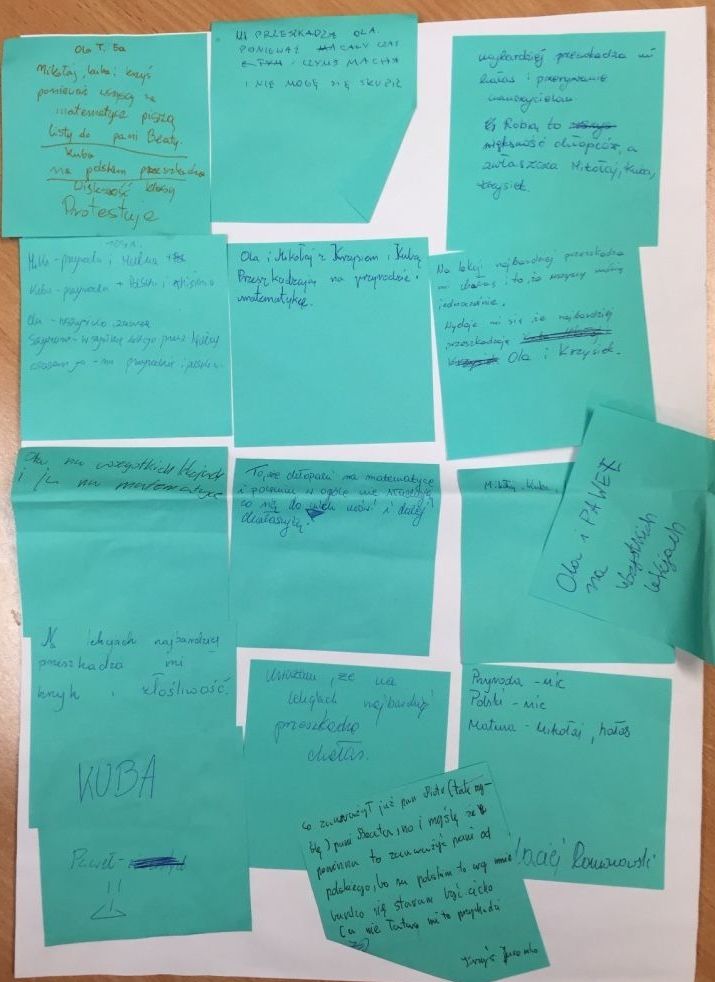 Ola T. 5a
Mikołaj, kuba i krzyś
ponieważ wszyscy na
matematyce piszą
listy do pani Beaty.
Kuba
na polskim przeszkadza
Większość klasy
Protestuje
MI PRZESZKADZA OLA.
PONIEWAŻ CAŁY CZAS
CZYMŚ MACHA
I NIE MOGĘ SIĘ SKUPIĆ
najbardziej przeszkadza mi
hałas i przerywanie
nauczycielom
Robią to
większość chłopców, a
zwłaszcza Mikołaj, Kuba,
Krzysiek.
Miko - przyroda i
Kuba - przyroda + Polski i
Ola - wszystko, zawsze
Szymon -
czasem ja - na przyrodzie i polskim.
Ola i Mikołaj z Krzysiem i Kubą
Przeszkadzają na przyrodzie i
matematyke.
Na lekcji najbardziej przeszkadza
mi chałas i to, że wszyscy mówią
jednocześnie.
Wydaje mi się, że najbardziej
przeszkadzają
Ola i Krzysiek.
Ola na wszystkich lekcjach
i ja na matematyce
To, że chłopaki na matematyce
i polskim w ogóle nie słuchają
co się do nich mówi i dalej
chałasują.
Mikołaj, Kuba.
Ola i PAWEŁ
na
wszystkich
lekcjach
Na lekcjach najbardziej
przeszkadza mi
kryk i złośliwość.
KUBA
Paweł -
Uważam, że na
lekcjach najbardziej
przeszkadza
chałas.
Przyroda - nic
Polski - nic
Matma - Mikołaj, hałas
Maciej Romanowski
Co zauważył już pan Piotr (tak
) pani Beata, no i myślę że
powinna to zauważyć pani od
polskiego, bo na polskim to wg mnie
bardzo się staram być cicho
(a nie łatwo mi to przychodzi
Krzyś